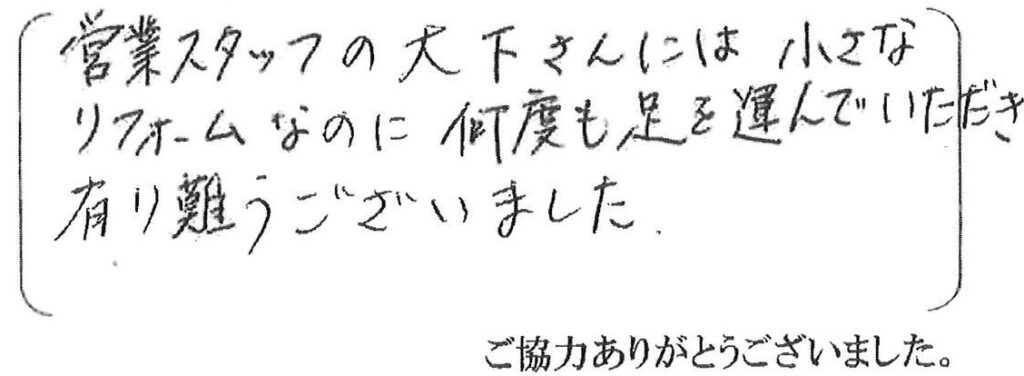 営業スタッフの大下さんには小さな
リフォームなのに何度も足を運んでいただき
有り難うございました.
ご協力ありがとうございました。